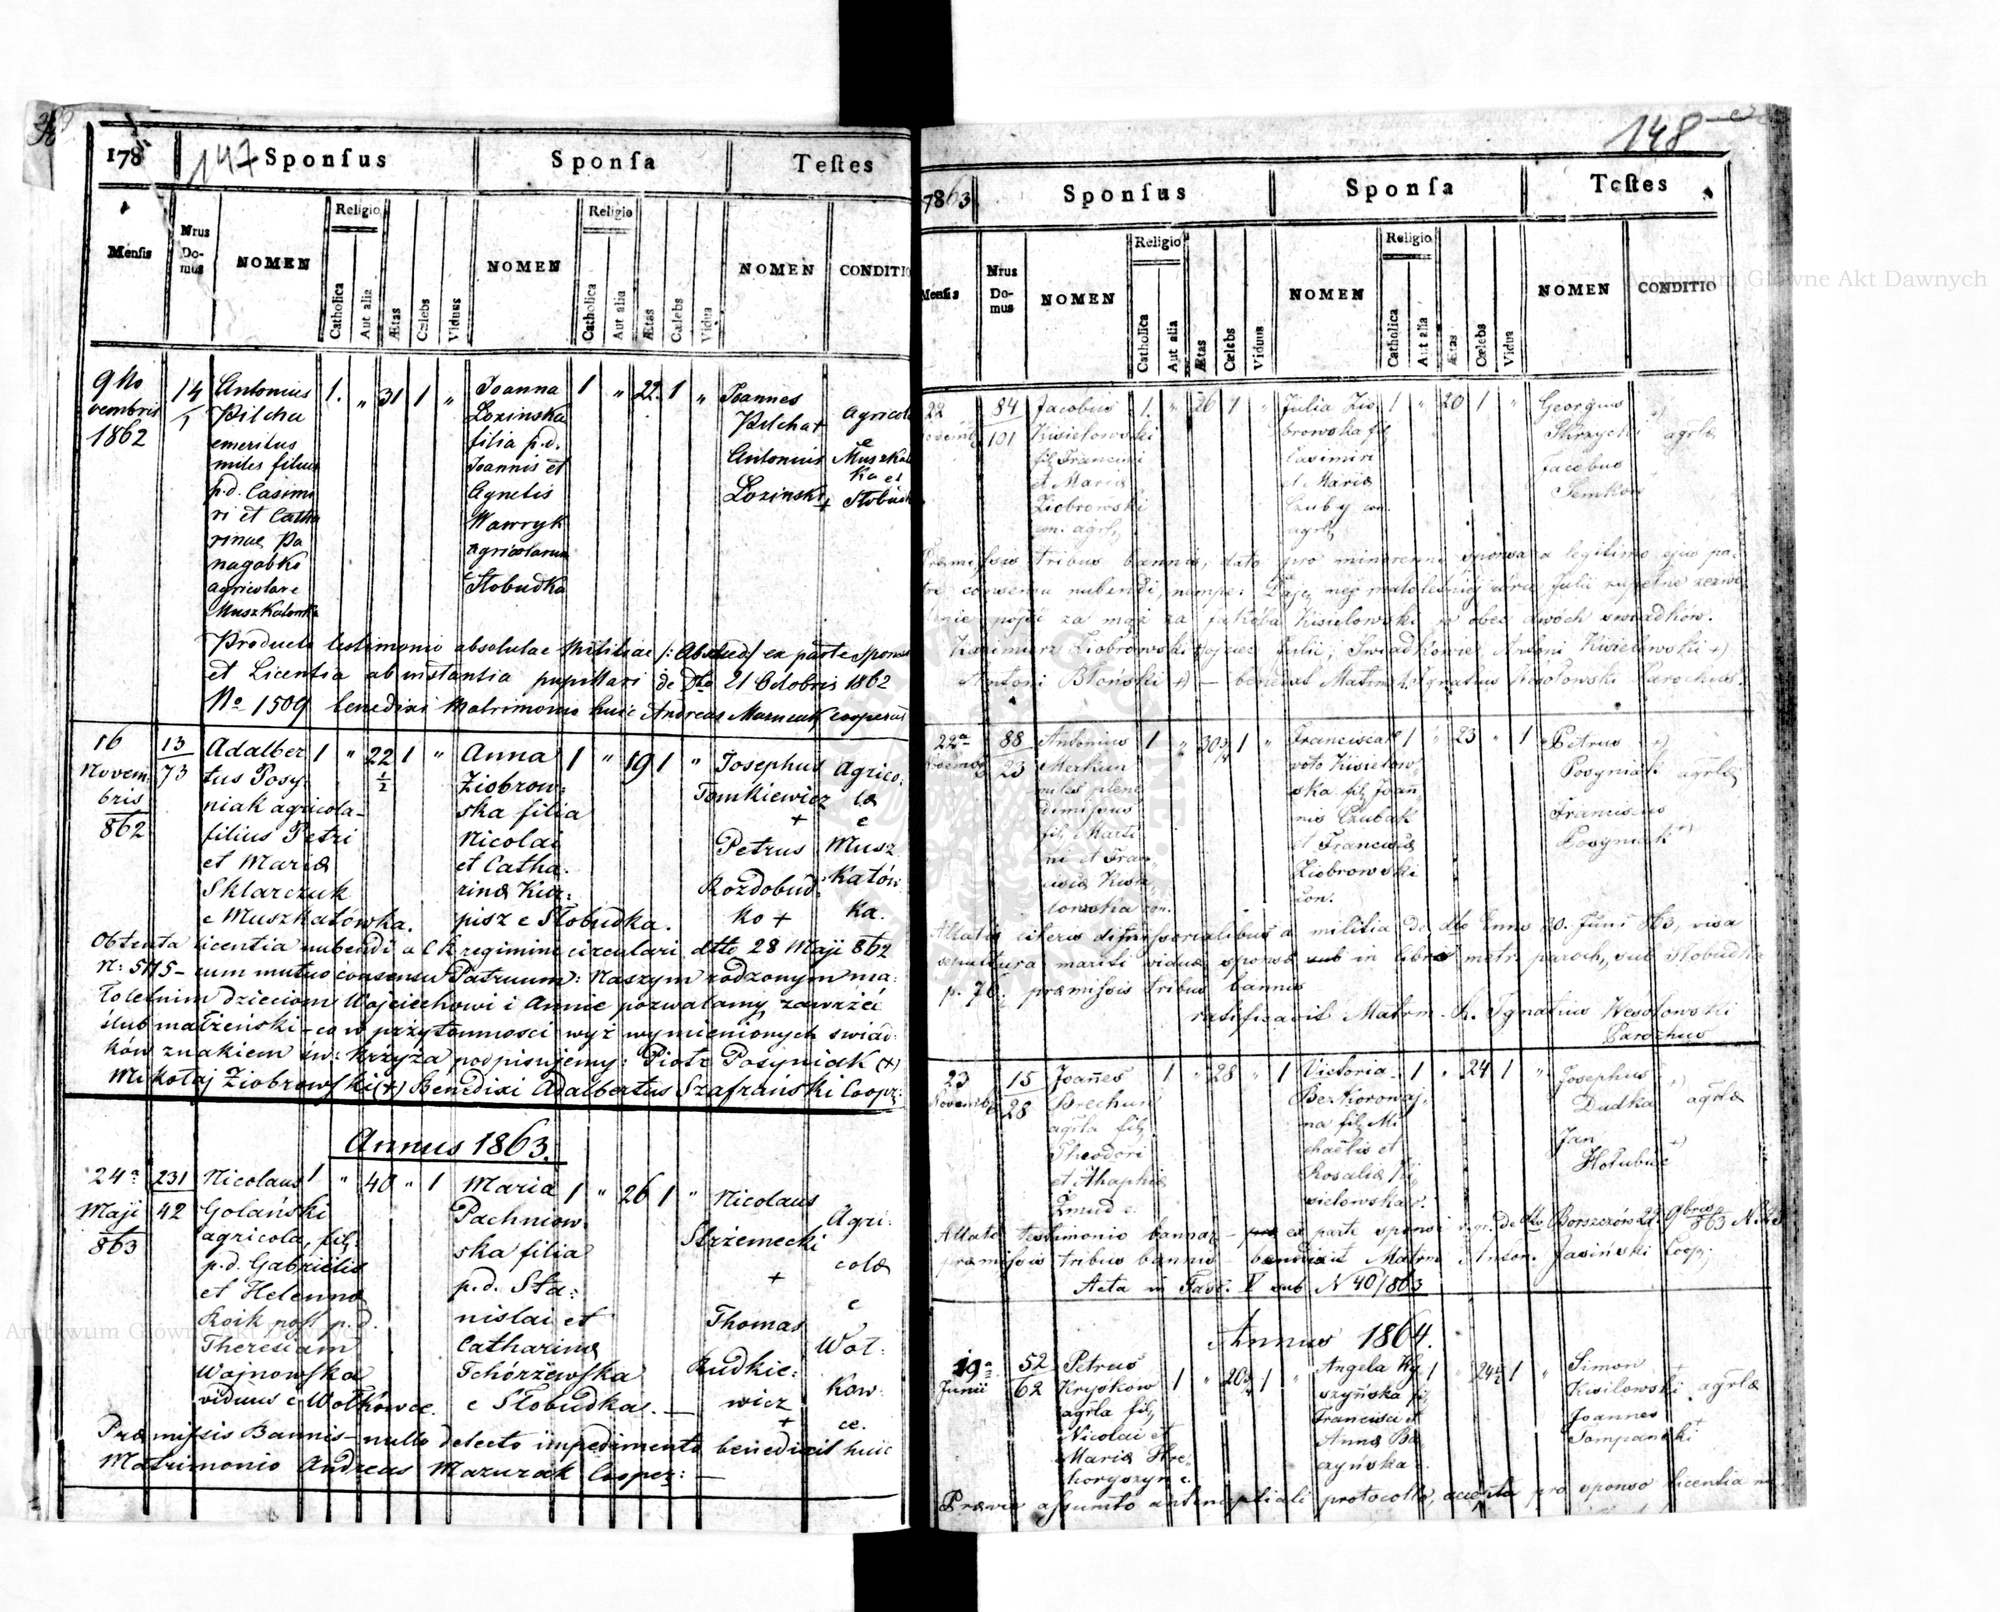 147
178
Sponſus
Sponſa
Teſtes
Menſis
Nrus Do-mus
NOMEN
Religio
Catholica
Aut alia
Ætas
Cœlebs
Viduus
NOMEN
Religio
Catholica
Aut alia
Ætas
Cœlebs
Vidua
NOMEN
CONDITIO
9 No
vembris
1862
14
1
Antonius
Pilcha
emeritus
miles filius
p.d. Casimi
ri et Catha
rinae Pa
nagabko
agricolare
Muszkatowka
1. " 31 1 "
Joanna
Lozinska
filia p.d.
Joannis et
Agnetis
Wawryk
agricolarum
e Słobudka
1 " 22. 1 "
Joannes
Pilcha +
Antonius
Lozinski +
agricol
e
Muszkat
ka et
Słobud
Producto testimonio absolutae Militiae /: Abschied / ex parte Sponsi
et Licentia ab instantia pupillari de Dto 21 Octobris 1862
No 1509 benedixi Matrimonio huic Andreas Mazurak cooperat
16
Novem:
bris
862
13
73
Adalber
tus Posy-
niak agricola-
filius Petri
et Mariæ
Sklarczuk
e Muszkatówka.
1 " 22 1/2 1 "
Anna
Ziobrow:
ska filia
Nicolai
et Catha:
rinæ Kur:
pisz e Słobudka.
1 " 19 1 "
Josephus
Tomkiewicz
+
Petrus
Rozdobud:
ko +
Agrico:
læ
e
Musz
katów:
ka.
Obtenta licentia nubendi a C k regimini circulari dtto 28 Maji 862
N: 5115 - cum mutuo consensu Patruum: Naszym rodzonym ma:
łoletnim dzieciom Wojciechowi i Annie pozwalamy zawrzeć
ślub małżeński - co w przytomności wyż wymienionych świad:
ków znakiem św: krzyża podpisujemy: Piotr Posyniak (+)
Mikołaj Ziobrowski (+) Benedixi Adalbertus Szafrański Coopr:
Annus 1863.
24a
Maji
863
231
42
Nicolaus
Golański
agricola, fil:
p.d. Gabrielis
et Helennæ
Roik post p.d.
Theresiam
Wajnowska
viduus e Wołkowce.
1 " 40 " 1
Maria
Pachniow
ska filia
p.d. Sta:
nislai et
Catharinæ
Tchórzewska
e Słobudka. —
1 " 26 1 "
Nicolaus
Strzemecki
+
Thomas
Rudkie:
wicz
+
Agri:
colæ
e
Woł:
kow:
ce.
Præmissis Bannis - nullo detecto impedimento benedixit huic
Matrimonio Andreas Mazurak Cooper: —
148
1863
Sponſus
Sponſa
Teſtes
Menſis
Nrus Do-mus
NOMEN
Religio
Catholica
Aut alia
Ætas
Cœlebs
Viduus
NOMEN
Religio
Catholica
Aut alia
Ætas
Cœlebs
Vidua
NOMEN
CONDITIO
22
84
101
Jacobus
Kisielowski
fil. Francisci
et Mariæ
Ziobrowski
con. agrl.
1. " 26 1 "
Julia Zio
browska fil
Casimiri
et Mariæ
Czuby con.
agrl.
1 " 20 1 "
Georgius
Skrzycki
Jacobus
Semkow
agrlæ
Præmissis tribus bannis, dato pro minorenni sponsa a legitimo ejus pa-
tre consensu nubendi, nempe: Daję mej małoletniej córce Julii zupełne zezwo
lenie pójść za mąż za Jakóba Kisielowski w obec dwóch świadków.
Kazimierz Ziobrowski ojciec Julii, Świadkowie Antoni Kisielowski +)
Antoni Błoński +) — benedixit Matrm. Ignatius Wesołowski Parochus.
22a
88
23
Antonius
Merkun
miles plene
dimissus
fil. Marti
ni et Fran
ciscæ Kisie
lowska con.
1 " 30 3/4 1 "
Francisca 1o
voto Kisielow
ska fil. Joan
nis Czubak
et Franciscæ
Ziobrowski
con.
1 " 23 " 1
Petrus +)
Posyniak
Franciscus
Posyniak +)
agrlæ
Allatis literis dismissorialibus a militia de dto 20. Juni 863, visa
sepultura mariti viduæ sponsæ in libro metr. paroch. sub Słobudka
p. 76. præmissis tribus bannis
ratificavit Matrm. Ignatius Wesołowski
Parochus
23
15
28
Joannes
Brechun
agrla fil.
Theodori
et Ahaphiæ
Żmud c.
1 " 28 " 1
Victoria
Bezkorowaj
na fil. Mi
chaelis et
Rosaliæ Ki
sielowska c.
1 " 24 1 "
Josephus +)
Dudka
Jan +)
Hołubiec
agrlæ
Allato testimonio bannor - ex parte sponsi de dto Borszczów 22 9bris 863 N. 23
præmissis tribus bannis - benedixit Matrm Anton. Jasiński Coop:
Acta in Fasc. V sub N 40/863
Annus 1864.
19a
Junii
52
62
Petrus
Kryśków
agrla fil.
Nicolai et
Mariæ Hre
horyszyn c.
1 " 20 3/4 1 "
Angela Wy
szyńska fil
Francisci et
Annæ Ba
czyńska c.
1 " 24 1/2 1 "
Simon +
Kisilowski
Joannes
Tompanski +
agrlæ
Prævio assumto antenuptiali protocollo, accepta pro sponso licentia
Archiwum Główne Akt Dawnych
Archiwum Główne Akt Dawnych